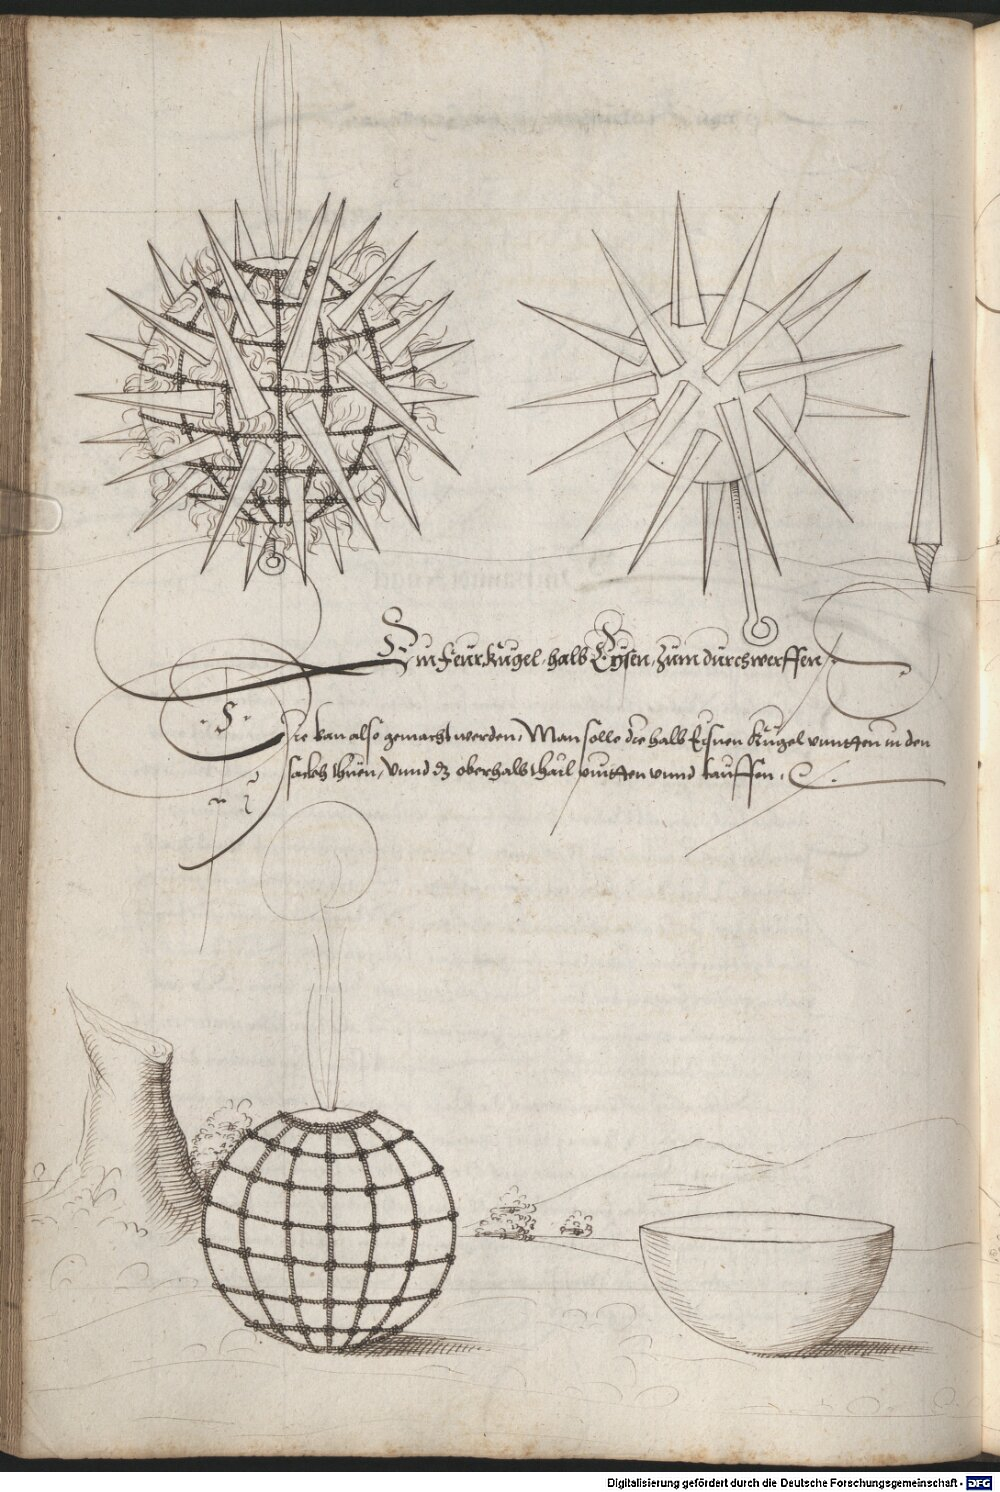 Ein Feur Kugel, halb Eysen, Zum durchwerffen,
Die kan also gemacht werden, Man solle die halb Eisnen Kugel vnntten in den
sackh thuen, Vnnd dz oberhalb thail pintten vnnd tauffen.
Digitalisierung gefördert durch die Deutsche Forschungsgemeinschaft - DFG